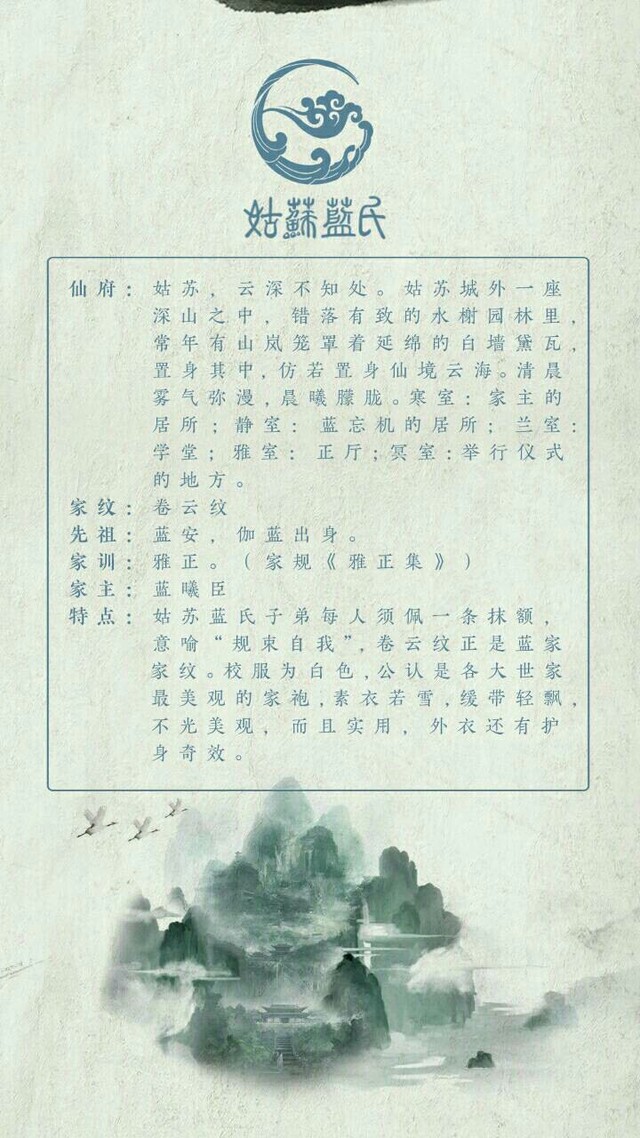 姑蘇藍氏
仙府：姑苏，云深不知处。姑苏城外一座
深山之中，错落有致的水榭园林里，
常年有山岚笼罩着延绵的白墙黛瓦，
置身其中，仿若置身仙境云海。清晨
雾气弥漫，晨曦朦胧。寒室：家主的
居所；静室：蓝忘机的居所；兰室：
学堂；雅室：正厅；冥室：举行仪式
的地方。
家纹：卷云纹
先祖：蓝安，伽蓝出身。
家训：雅正。（家规《雅正集》）
家主：蓝曦臣
特点：姑苏蓝氏子弟每人须佩一条抹额，
意喻“规束自我”，卷云纹正是蓝家
家纹。校服为白色，公认是各大世家
最美观的家袍，素衣若雪，缓带轻飘，
不光美观，而且实用，外衣还有护
身奇效。